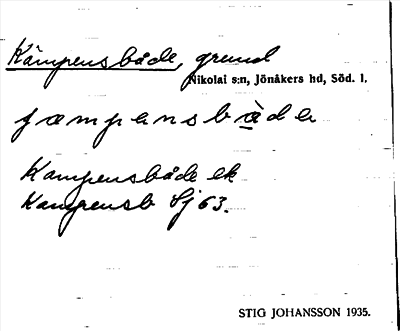 Kämpensbåde, grund
Nikolai s:n, Jönåkers hd, Söd. l.
Kampensbåde ek
Kampensb Sj 63.
STIG JOHANSSON 1935.